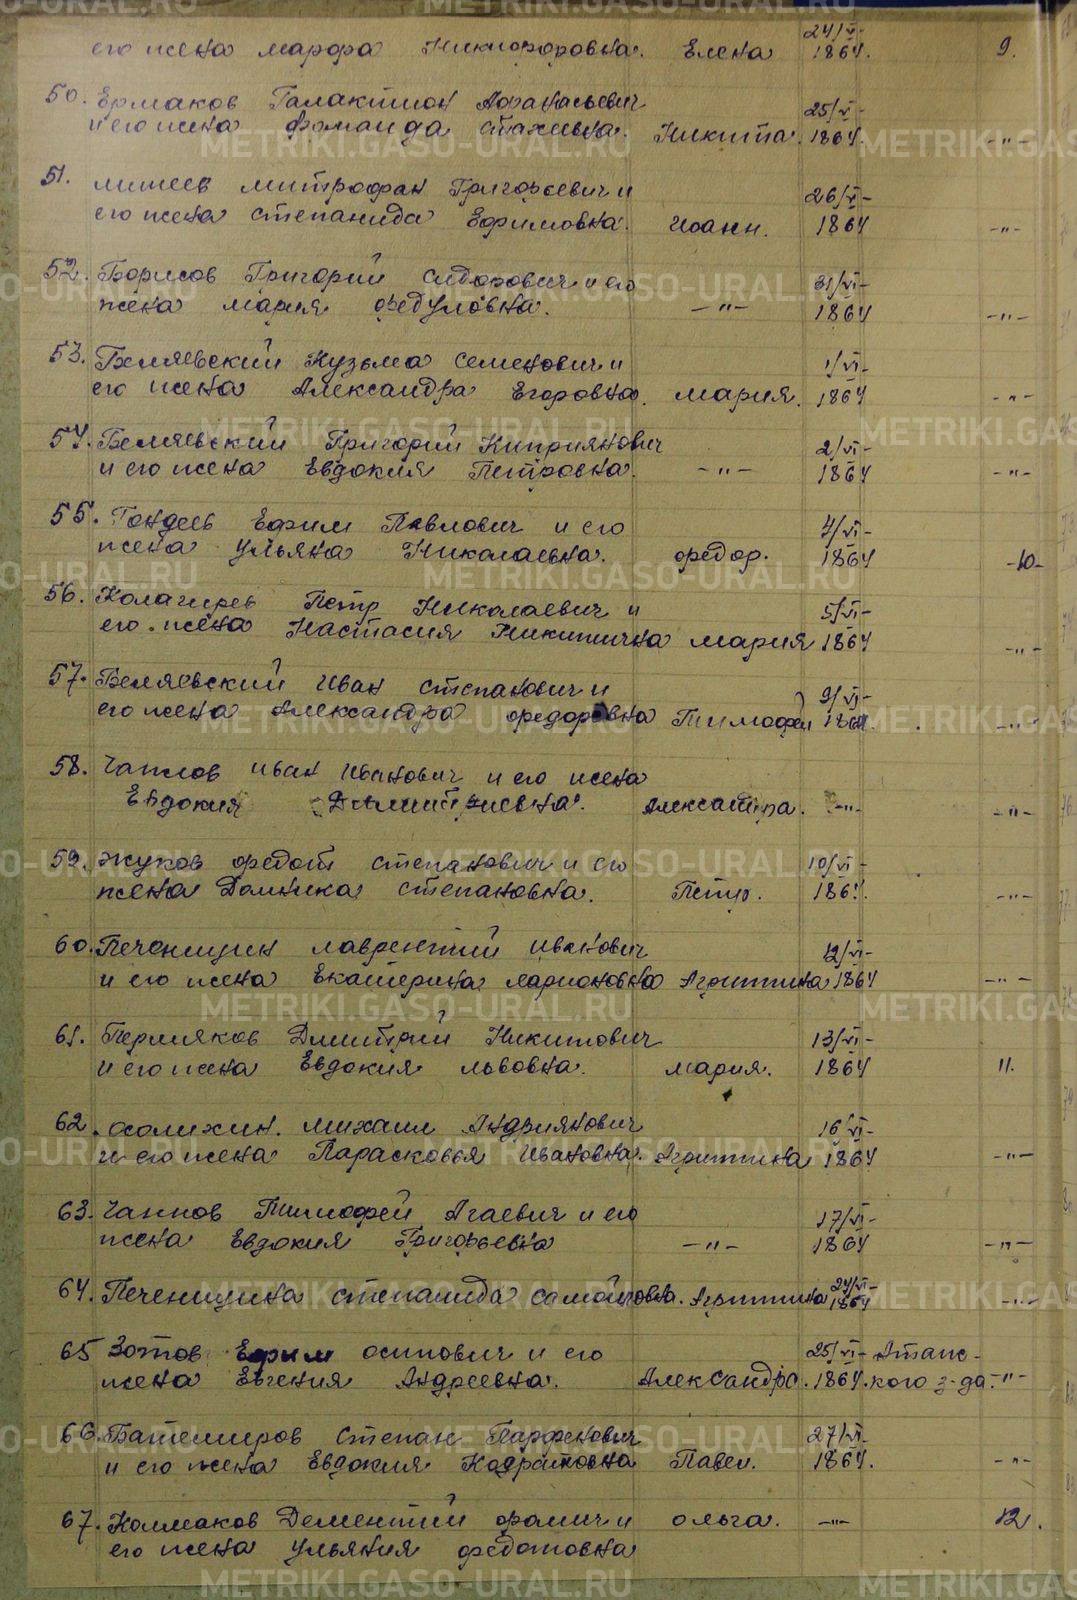 24/V-
его жена Марфа Никифоровна. Елена 1864. 9.
50. Ермаков Галактион Афанасьевич 25/V-
и его жена Фоманда Стахиевна. Никита. 1864. -"-
51. Минеев Митрофан Григорьевич и 26/V-
его жена Степанида Ефимовна. Иоанн. 1864 -"-
52. Борисов Григорий Сидорович и его 31/VI-
жена Мария Федуловна. -"- 1864 -"-
53. Беляевский Кузьма Семенович и 1/VI-
его жена Александра Егоровна. Мария. 1864 -"-
54. Беляевский Григорий Киприянович 2/VI-
и его жена Евдокия Петровна. -"- 1864 -"-
55. Гондеев Ефим Павлович и его 4/VI-
жена Ульяна Николаевна. Федор. 1864 -10-
56. Колагирев Петр Николаевич и 5/VI-
его жена Настасия Никитична Мария 1864 -"-
57. Беляевский Иван Степанович и 9/VI-
его жена Александра Федоровна Тимофей 1864. -"-
58. Чаплов Иван Иванович и его жена
Евдокия Дмитриевна. Александра. -"- -"-
59. Жуков Федот Степанович и его 10/VI-
жена Домника Степановна. Петр. 1864. -"-
60. Печеницин Лаврентий Иванович 12/VI-
и его жена Екатерина Ларионовна Агриппина 1864 -"-
61. Пермяков Дмитрий Никитович 13/VI-
и его жена Евдокия Львовна. Мария. 1864 11.
62. Осолихин. Михаил Андриянович 16/VI-
и его жена Парасковья Ивановна. Агриппина 1864 -"-
63. Чаплов Тимофей Агаевич и его 17/VI-
жена Евдокия Григорьевна -"- 1864 -"-
64. Печеницина Степанида Самойловна. Агриппина 24/VI- 1864 -"-
65 Зотов Ефим Осипович и его 25/VI- Атапс-
жена Евгения Андреевна. Александра. 1864. кого з-да. -"-
66. Батемиров Степан Парфенович 27/VI-
и его жена Евдокия Кодратовна Павел. 1864. -"-
67. Колмаков Дементий Фомич и Ольга. -"- 12.
его жена Ульяния Федотовна
METRIKI.GASO-URAL.RU